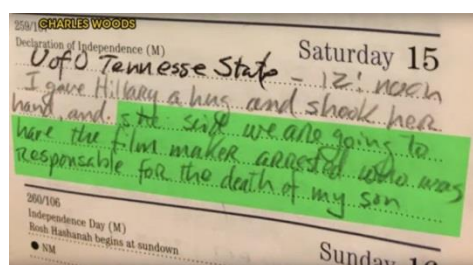 CHARLES WOODS
259/107
Declaration of Independence (M)
Saturday 15
U of O Tennesse State - 12: noon
I gave Hillary a hug and shook her
hand, and. she said we are going to
have the film maker arrested who was
responsable for the death of my son
260/106
Independence Day (M)
Rosh Hashanah begins at sundown
● NM
Sunday